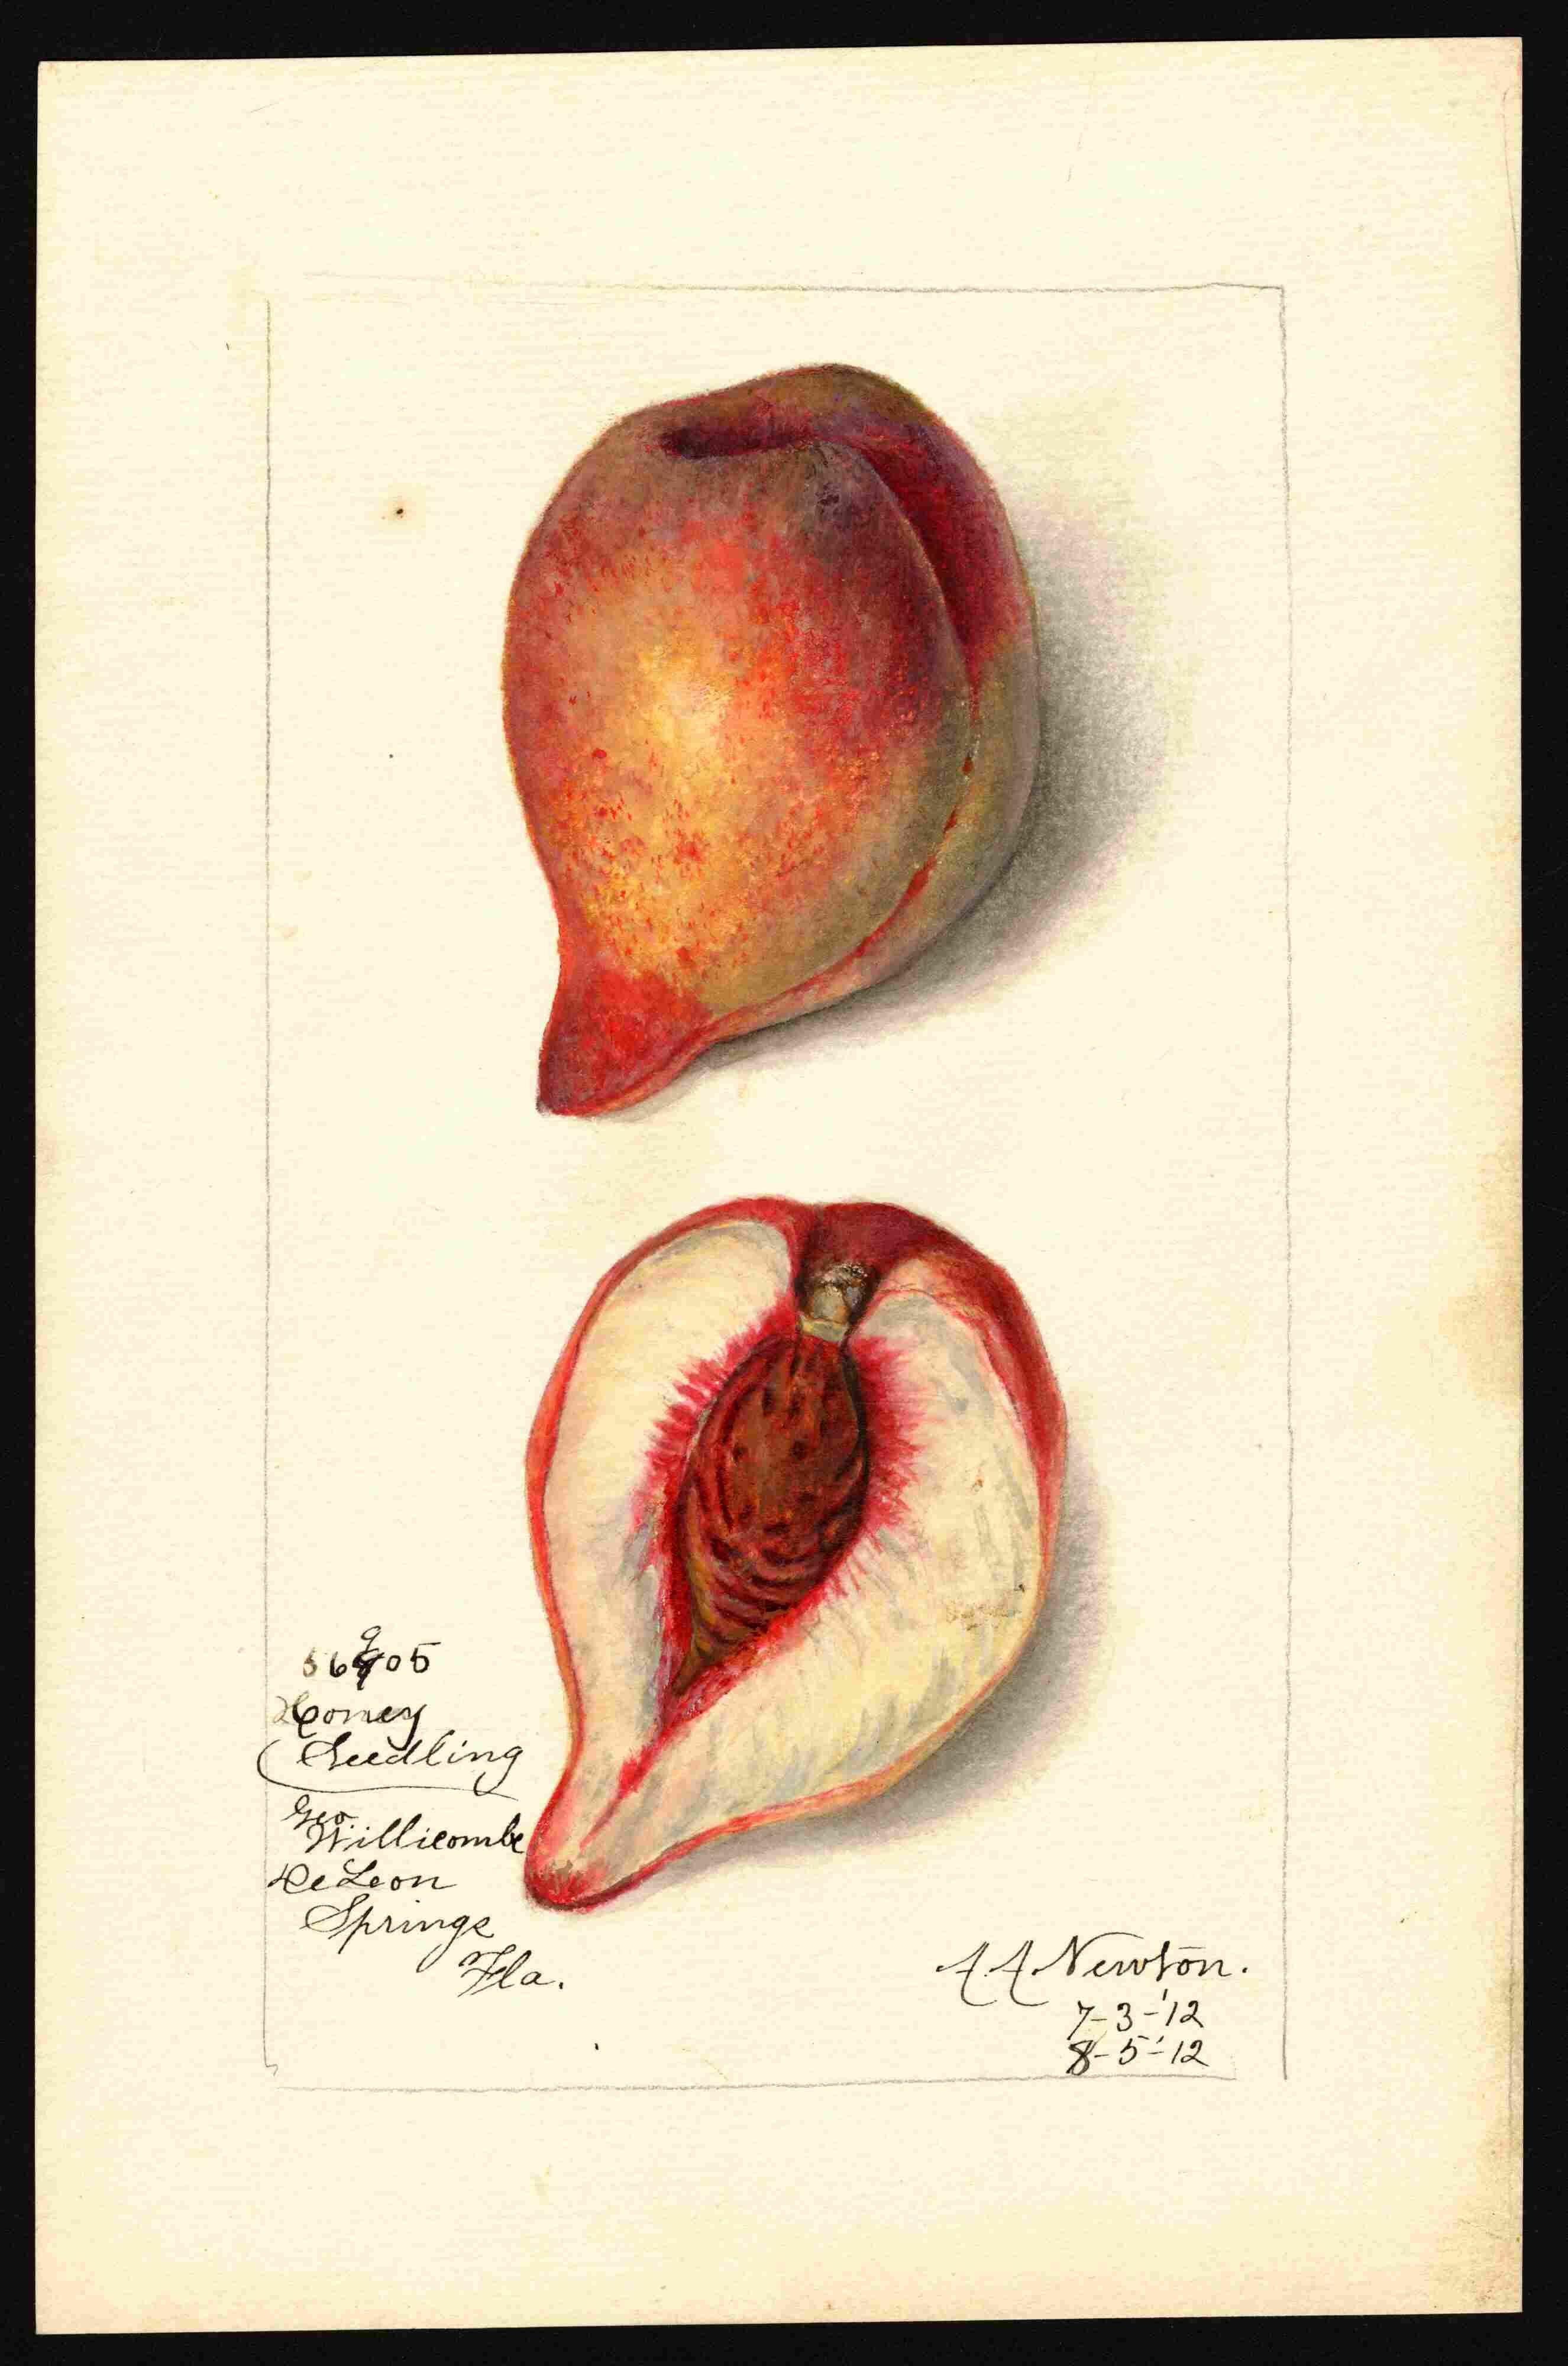 56905
Honey
Seedling
Geo.
Willicombe
DeLeon
Springs
Fla.
A.A. Newton.
7-3-'12
8-5-'12